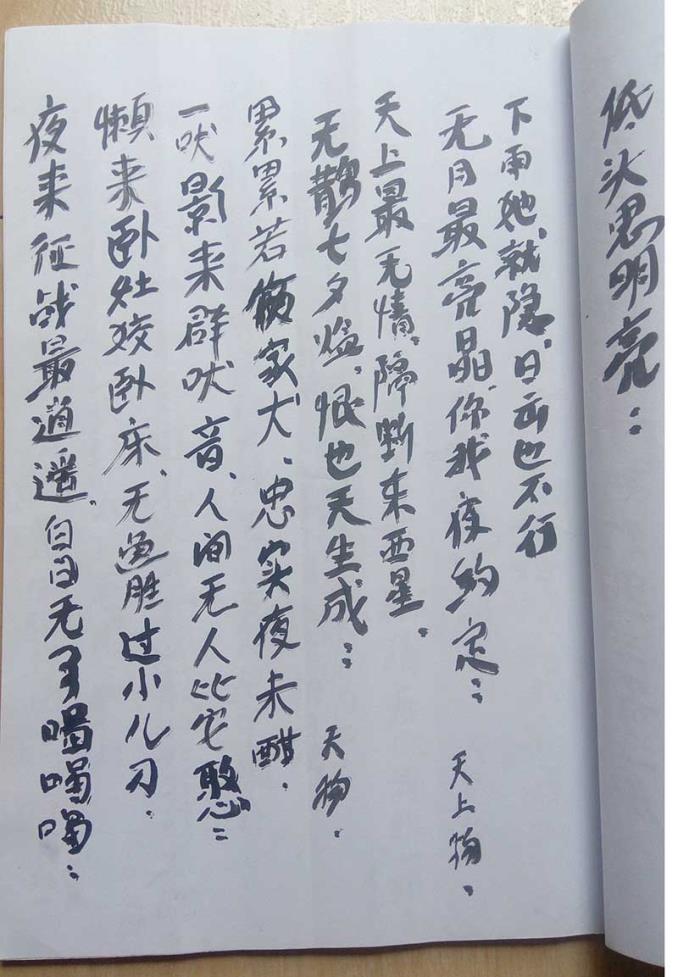 低头思明亮：
下雨她就隐、日出也不行
无月最亮晶、你我夜约定： 天上物．
天上最无情、隔断东西星．
无鹊七夕尴、恨也天生成： 天物．
累累若 家犬、忠实夜未酣．
一吠影来群吠音、人间无人比它憨：
懒来卧灶狡卧床、无过胜过小儿刀．
夜来征战最逍遥、白日无事喝喝喝：